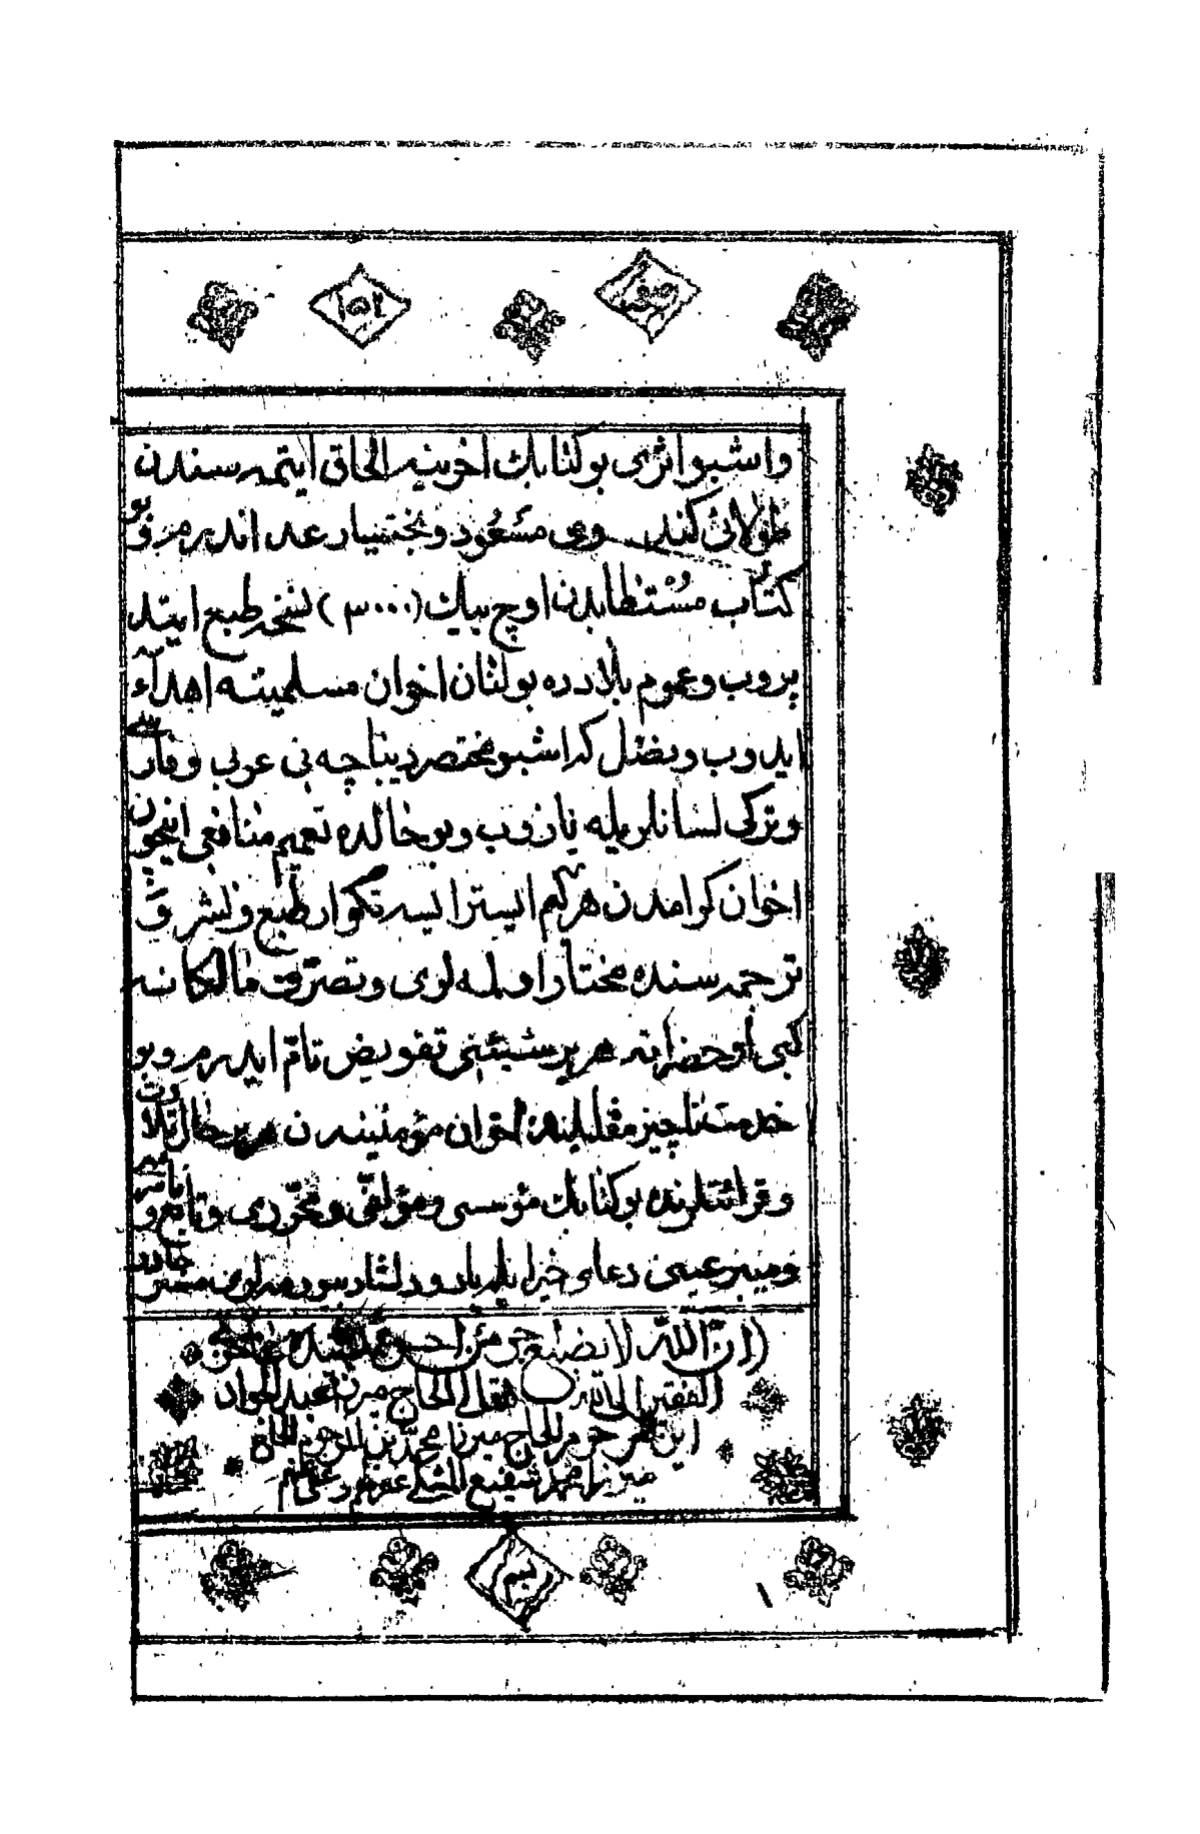 صفحه
١٥٢
واشبو اثری بو كتابك اخرینه الحاق ایتمه سندن
طولائ كندی وی مسعود و بختیار عد اندرم و بو
كتاب مستطابدن اوچ بیك (٣٠٠٠) نسخه طبع ایتد
یروب و عموم بلادده بولنان اخوان مسلمینه اهدآء
ایدوب و بفضل كه اشبو مختصر دیباچه نی عربی و فارسی
و تركی لسانلریله یازوب و بو حالده تعمیم منافعی ایچون
اخوان كرامدن هر كیم ایستر ایسه تكرار طبع و نشر و
ترجمه سنده مختار اوله لری و تصرف مالكانه
كبی او حضراته هر بر شیئنی تفویض تام ایدرم و بو
خدمت ناچیز مقابلنده اخوان مؤمنیندن هر بر حال تلاوت
و قرائتلرنده بو كتابك مؤسسی و مؤلفی و محرری و تابع و ناشر
و مبیز عیبنی دعاء خیر ایله یاد و دلشاد بیورمه لری
(ان الله لا یضیع
الفقیر الی الله اقل الحاج میرزا عبد الجواد
ابن المرحوم الحاج میرزا محمد بن المرحوم الحاج
میرزا محمد شفیع
١